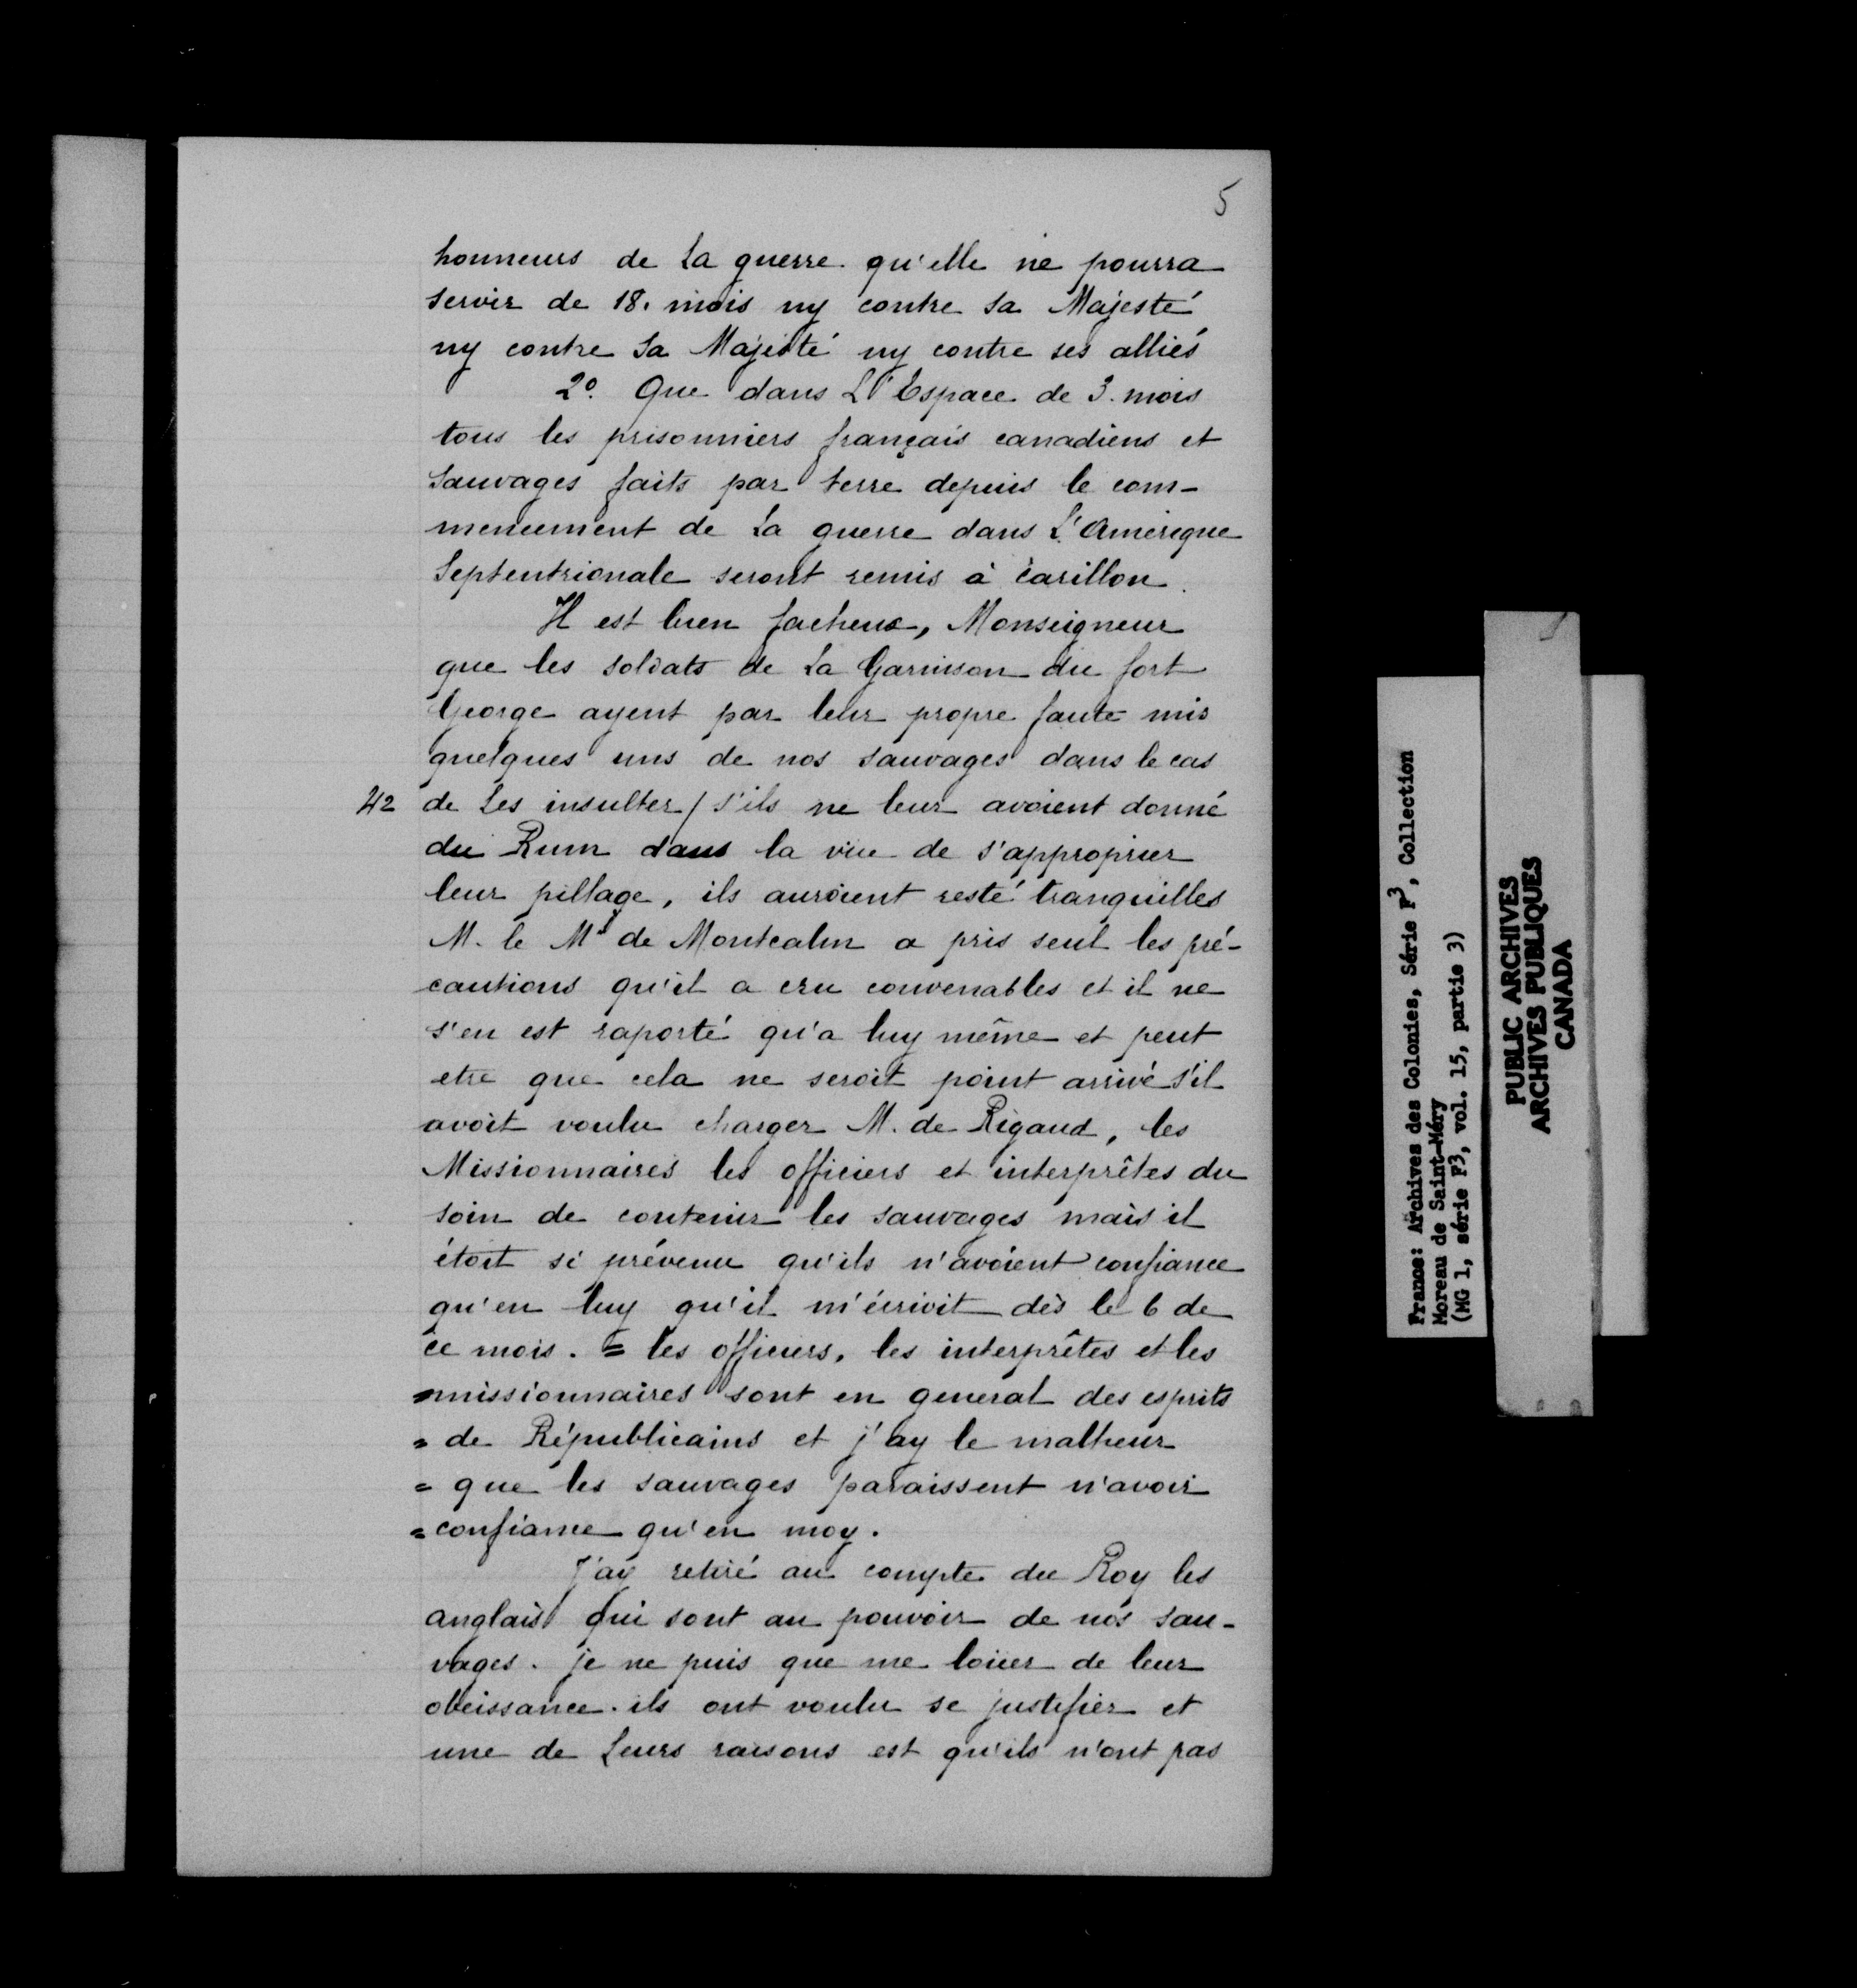 5
honneurs de la guerre qu'elle ne pourra
servir de 18. mois ny contre sa Majesté
ny contre sa Majesté ny contre ses alliés
2º. Que dans L'Espace de 3. mois
tous les prisonniers français canadiens et
sauvages faits par terre depuis le com-
mencement de la guerre dans L'Amerique
Septentrionale seront remis à Carillon.
Il est bien facheux, Monseigneur
que les soldats de la Garnison du fort
George ayent par leur propre faute mis
quelques uns de nos sauvages dans le cas
42 de les insulter / s'ils ne leur avoient donné
du Rum dans la vüe de s'approprier
leur pillage, ils auroient resté tranquilles
M. le Mis de Montcalm a pris seul les pré-
cautions qu'il a cru convenables et il ne
s'en est raporté qu'a luy même et peut
etre que cela ne seroit point arrivé s'il
avoit voulu charger M. de Rigaud, les
Missionnaires les officiers et interprêtes du
soin de contenir les sauvages mais il
étoit si prévenu qu'ils n'avoient confiance
qu'en luy qu'il m'écrivit dès le 6 de
ce mois. = les officiers, les interprêtes et les
=missionnaires sont en general des esprits
= de Républicains et j'ay le malheur
= que les sauvages paraissent n'avoir
= confiance qu'en moy.
J'ay retiré au compte du Roy les
anglais qui sont au pouvoir de nos sau-
vages. je ne puis que me loüer de leur
obeissance. ils ont voulu se justifier et
une de Leurs raisons est qu'ils n'ont pas
France: Archives des Colonies, Série F3, Collection
Moreau de Saint-Méry
(MG 1, série F3, vol. 15, partie 3)
PUBLIC ARCHIVES
ARCHIVES PUBLIQUES
CANADA